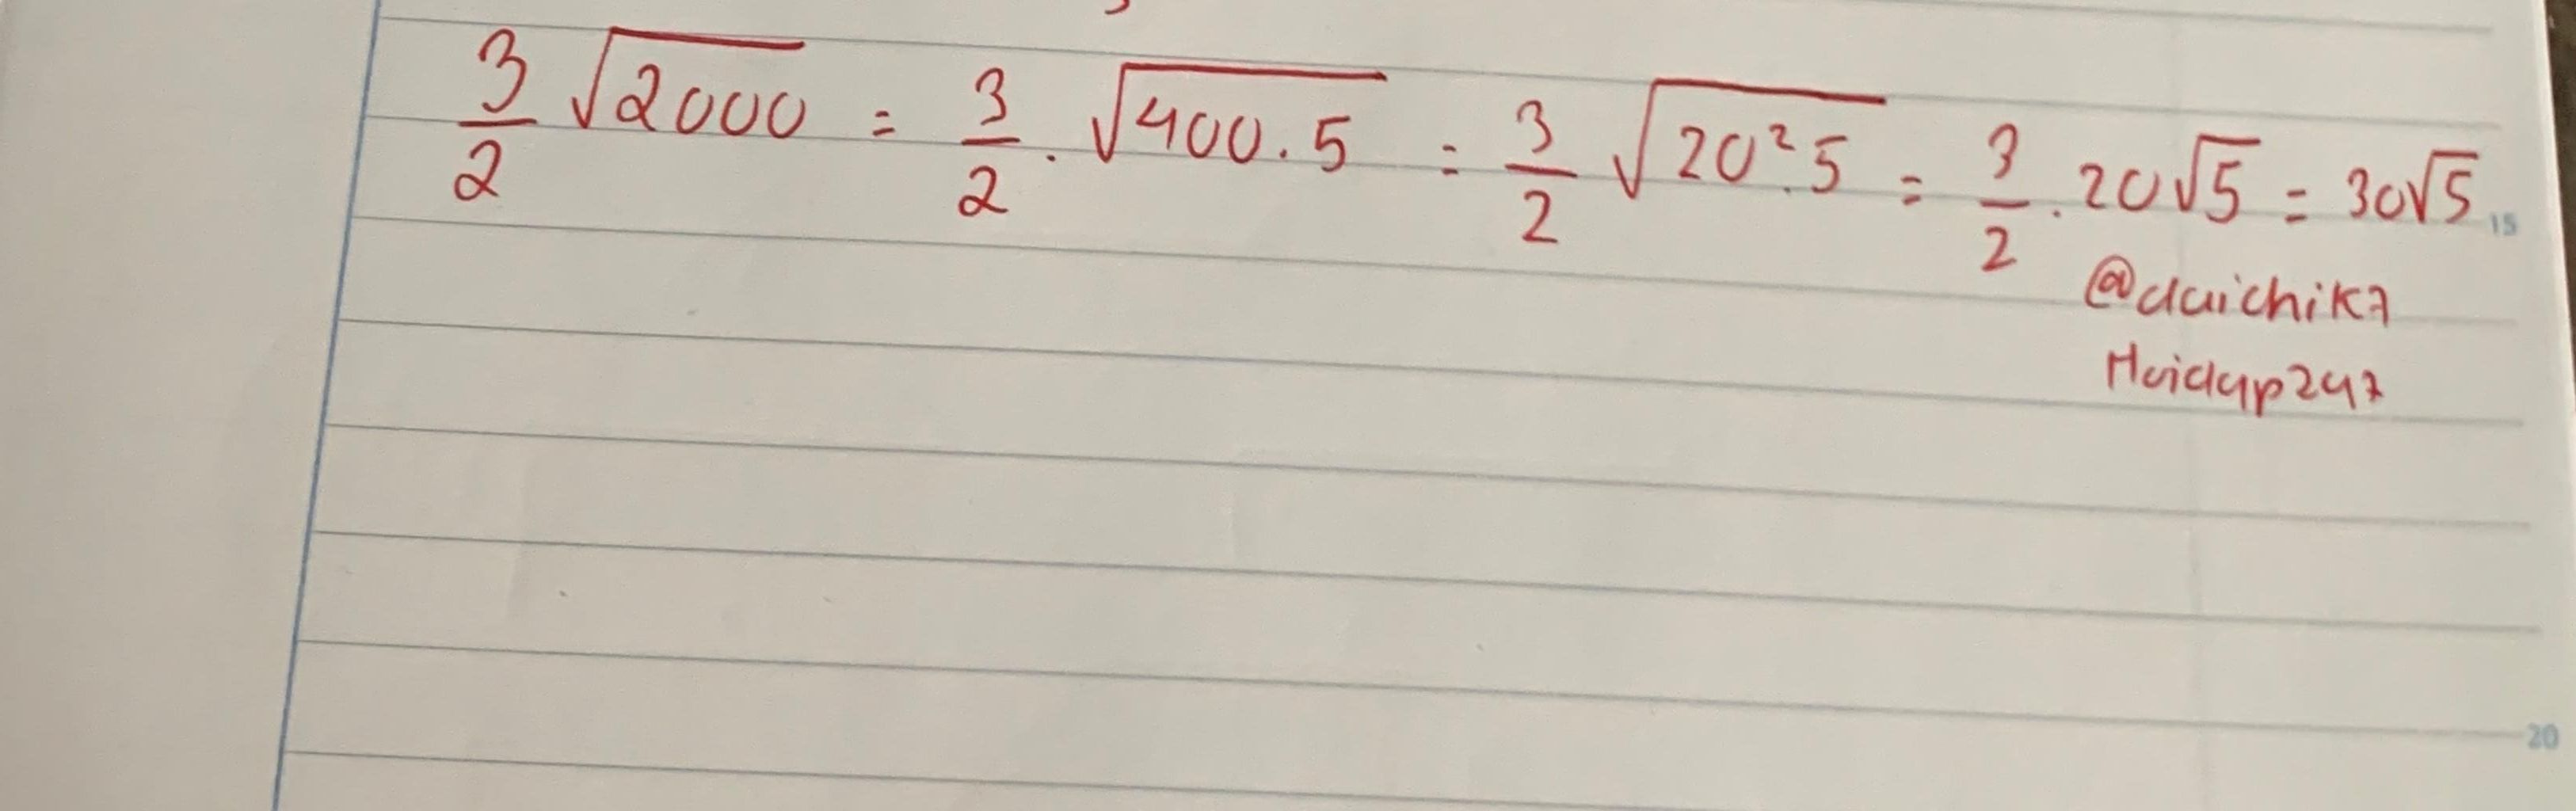 3/2 √2000 = 3/2 . √400.5 = 3/2 √20².5 = 3/2 . 20√5 = 30√5
15
@daichik7
Hoidap247
20